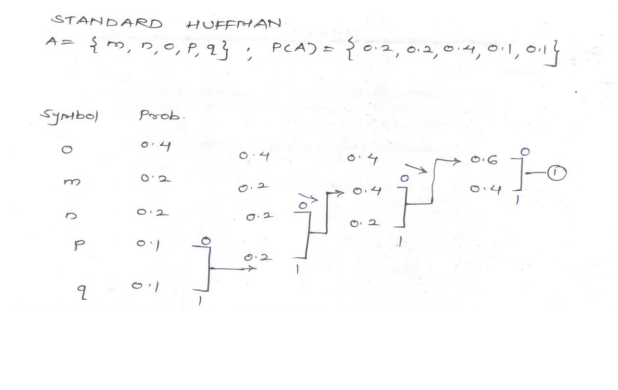 STANDARD HUFFMAN
A= {m, n, o, p, q} ; P(A) = {0.2, 0.2, 0.4, 0.1, 0.1}
Symbol Prob.
o 0.4 0.4 0.4 0.6 0 1
m 0.2 0.2 0.4 0 0.4 1
n 0.2 0.2 0 0.2 1
p 0.1 0 0.2 1
q 0.1 1